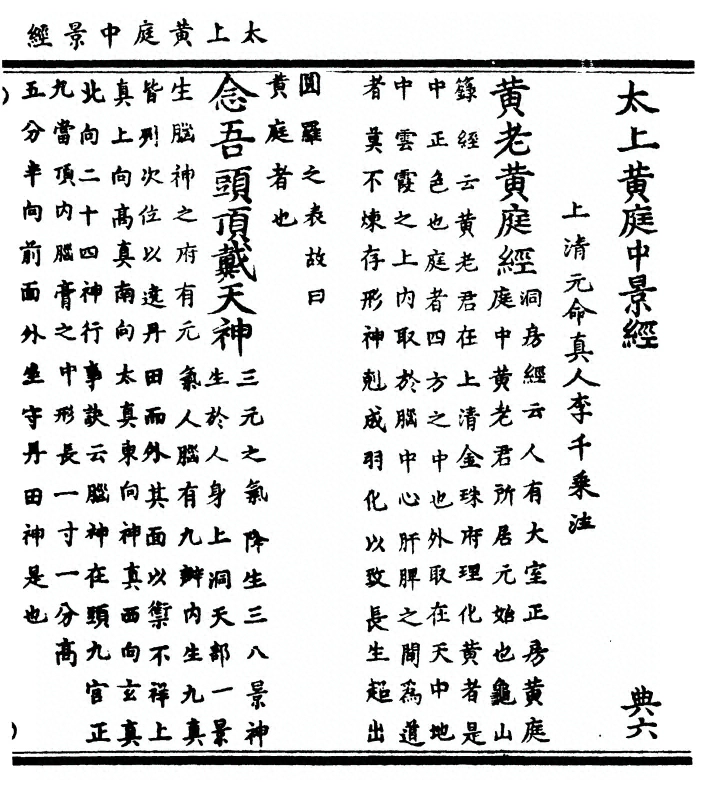 太上黃庭中景經
太上黃庭中景經
典六
上清元命真人李千乘注
黃老黃庭經
洞房經云人有大室正房黃庭
庭中黃老君所居元始也龜山
籙經云黃老君在上清金珠府理化黃者是
中正色也庭者四方之中也外取在天中地
中雲霞之上內取於腦中心肝脾之間為道
者莫不煉存形神剋成羽化以致長生超出
圓羅之表故曰
黃庭者也
念吾頭頂戴天神
三元之氣降生三八景神
生於人身上洞天部一景
生腦神之府有元氣人腦有九瓣內生九真
皆列次位以遶丹田而外其面以禦不祥上
真上向高真南向太真東向神真西向玄真
北向二十四神行事訣云腦神在頭九官正
九當頂內腦膏之中形長一寸一分高
五分半向前面外坐守丹田神是也